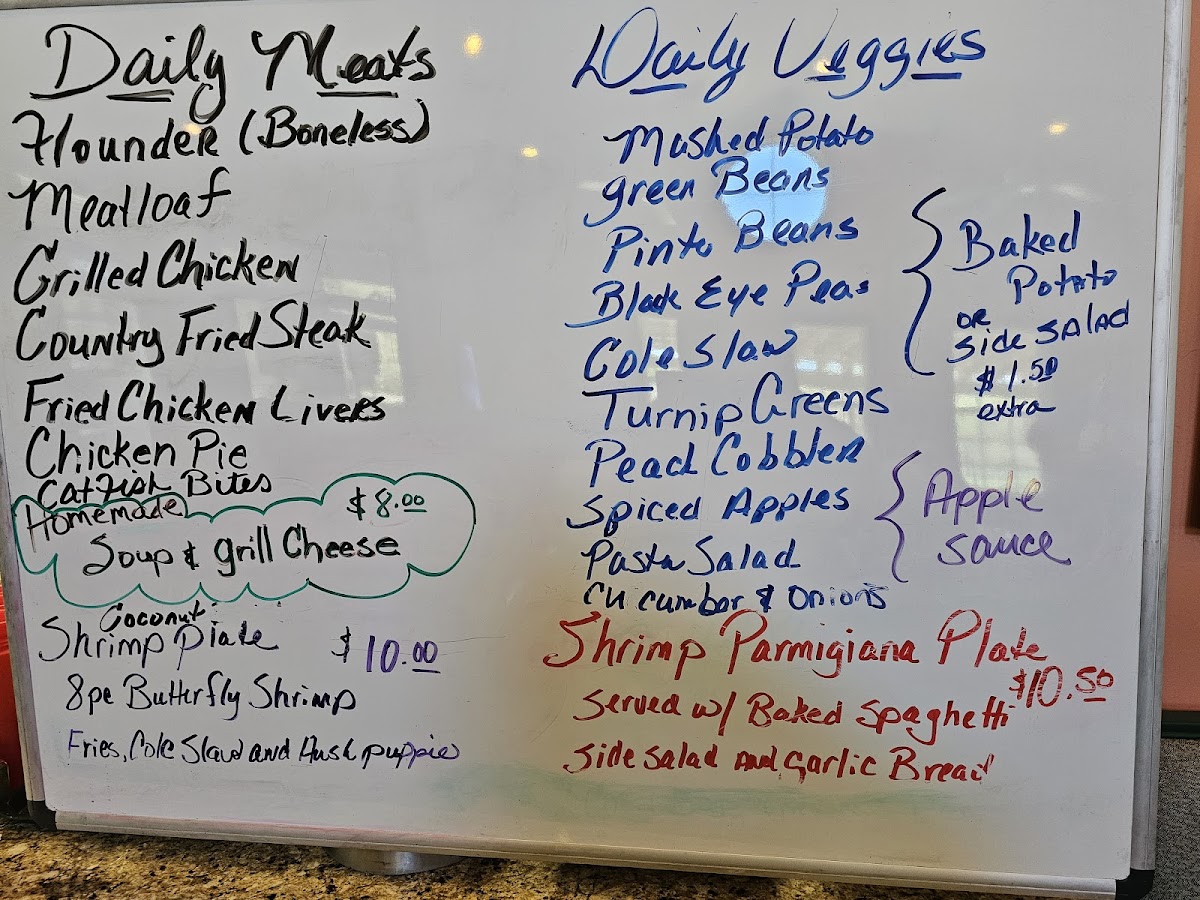 Daily Meats
Flounder (Boneless)
Meatloaf
Grilled Chicken
Country Fried Steak
Fried Chicken Livers
Chicken Pie
Catfish Bites
Homemade $8.00
Soup & grill Cheese
Coconut
Shrimp Plate $10.00
8pc Butterfly Shrimp
Fries, Cole Slaw and Hushpuppie
Daily Veggies
Mashed Potato
green Beans
Pinto Beans
Black Eye Peas
Cole Slaw
Turnip Greens
Peach Cobbler
Spiced Apples
Pasta Salad
Cucumber & Onions
Baked
Potato
OR
Side Salad
$1.50
extra
Apple
Sauce
Shrimp Parmigiana Plate
$10.50
Served w/ Baked Spaghetti
Side Salad and Garlic Bread